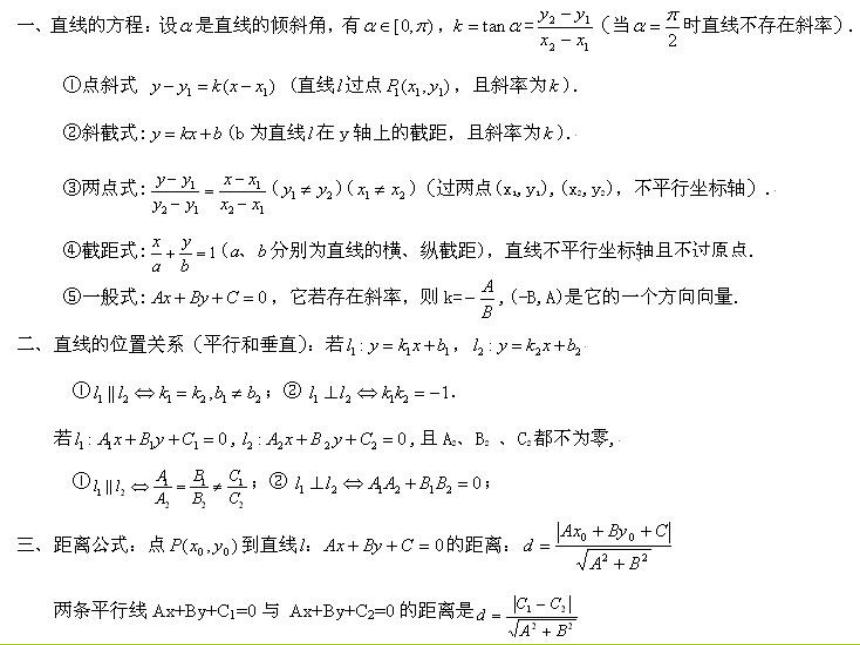 一、直线的方程：设α是直线的倾斜角，有α∈[0,π)，k=tanα=\frac{y₂-y₁}{x₂-x₁}（当α=\frac{π}{2}时直线不存在斜率）.
①点斜式 y-y₁=k(x-x₁) (直线l过点P₁(x₁,y₁)，且斜率为k).
②斜截式:y=kx+b(b为直线l在y轴上的截距，且斜率为k).
③两点式:\frac{y-y₁}{y₂-y₁}=\frac{x-x₁}{x₂-x₁}(y₁≠y₂)(x₁≠x₂)(过两点(x₁,y₁),(x₂,y₂)，不平行坐标轴）.
④截距式:\frac{x}{a}+\frac{y}{b}=1(a、b分别为直线的横、纵截距)，直线不平行坐标轴且不过原点.
⑤一般式:Ax+By+C=0，它若存在斜率，则k=-\frac{A}{B},(-B,A)是它的一个方向向量.
二、直线的位置关系（平行和垂直）：若l₁:y=k₁x+b₁，l₂:y=k₂x+b₂
①l₁∥l₂⇔k₁=k₂,b₁≠b₂；② l₁⊥l₂⇔k₁k₂=-1.
若l₁:A₁x+B₁y+C₁=0,l₂:A₂x+B₂y+C₂=0,且A₂、B₂、C₂都不为零,
①l₁∥l₂⇔\frac{A₁}{A₂}=\frac{B₁}{B₂}≠\frac{C₁}{C₂}；② l₁⊥l₂⇔A₁A₂+B₁B₂=0；
三、距离公式：点P(x₀,y₀)到直线l：Ax+By+C=0的距离：d=\frac{|Ax₀+By₀+C|}{\sqrt{A²+B²}}
两条平行线Ax+By+C₁=0与 Ax+By+C₂=0的距离是d=\frac{|C₁-C₂|}{\sqrt{A²+B²}}